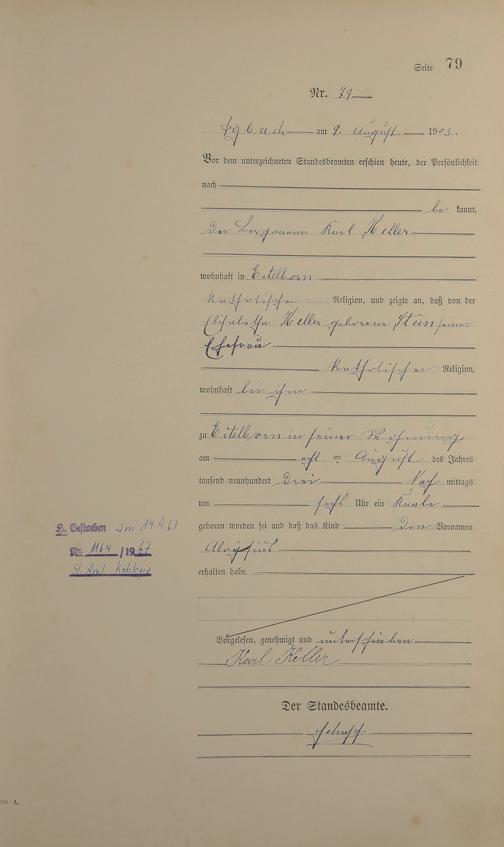 Seite 79
Nr. 79
am 9. August 1903.
Vor dem unterzeichneten Standesbeamten erschien heute, der Persönlichkeit
nach
be kannt,
der Bergmann Karl Keller
wohnhaft in Eitelborn
katholischer Religion, und zeigte an, daß von der
Elisabetha Keller geborene Stein seiner
Ehefrau
katholischer Religion,
wohnhaft bei ihm
zu Eitelborn in seiner Wohnung
am acht ten August des Jahres
tausend neunhundert drei Nach mittags
um sechs Uhr ein Knabe
geboren worden sei und daß das Kind den Vornamen
Aloysius
erhalten habe.
Vorgelesen, genehmigt und unterschrieben
Karl Keller
Der Standesbeamte.
Gestorben am 14.9.67
Nr. 1164 / 1967
St. Amt Koblenz